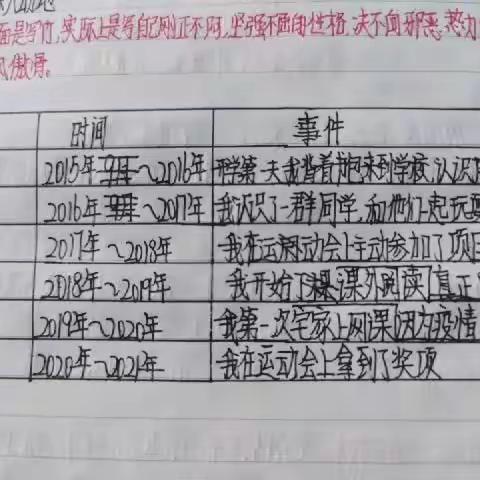 面是写竹,实际上是写自己刚正不阿,坚强不屈的性格,决不向邪恶势力
风傲骨。
时间 事件
2015年~2016年 开学第一天我背着书包来到学校,认识
2016年~2017年 我认识了一群同学,和他们一起玩耍
2017年~2018年 我在运动会上主动参加了项目
2018年~2019年 我开始了课外阅读,真正
2019年~2020年 我第一次宅家上网课(因为疫情
2020年~2021年 我在运动会上拿到了奖项